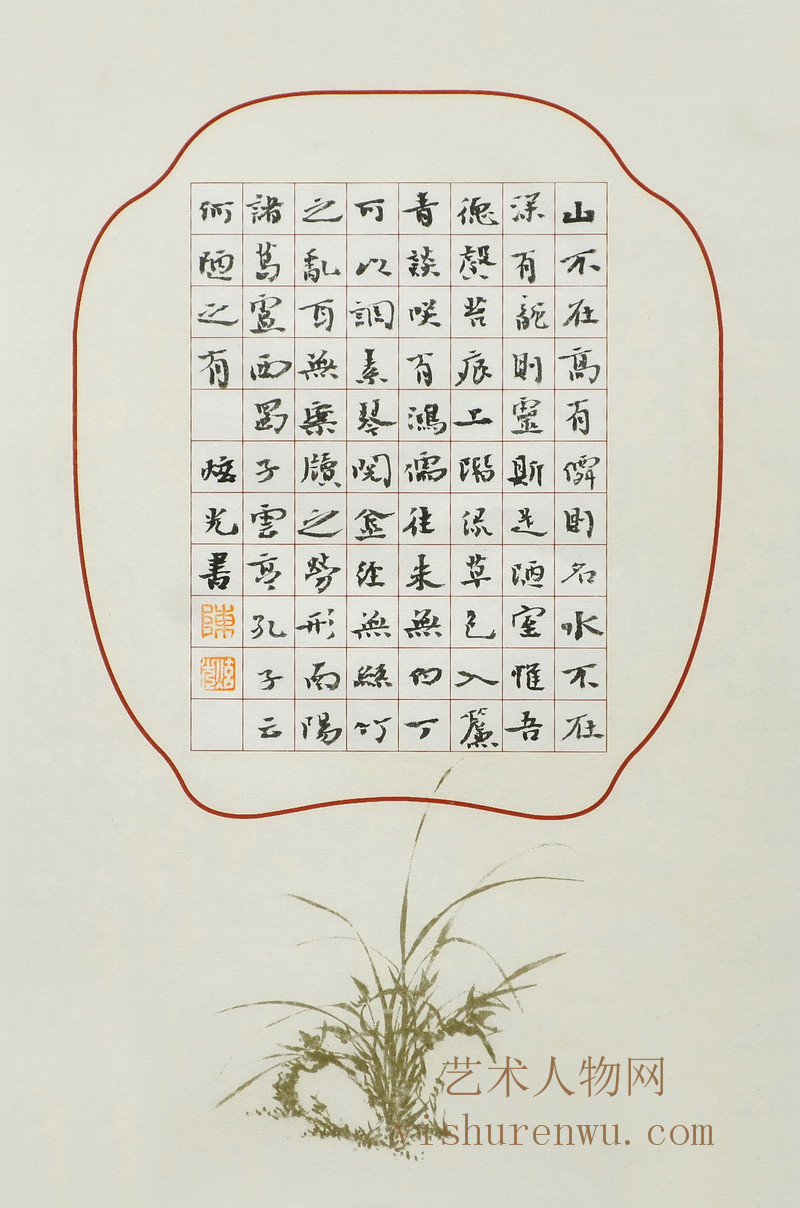 山不在高有僊則名水不在
深有龍則靈斯是陋室惟吾
德馨苔痕上階緑草色入簾
青談咲有鴻儒往来無白丁
可以調素琴閱金經無絲竹
之亂耳無案牘之勞形南陽
諸葛廬西蜀子雲亭孔子云
何陋之有 炫光書
陳
炫光
艺术人物网
yishurenwu.com